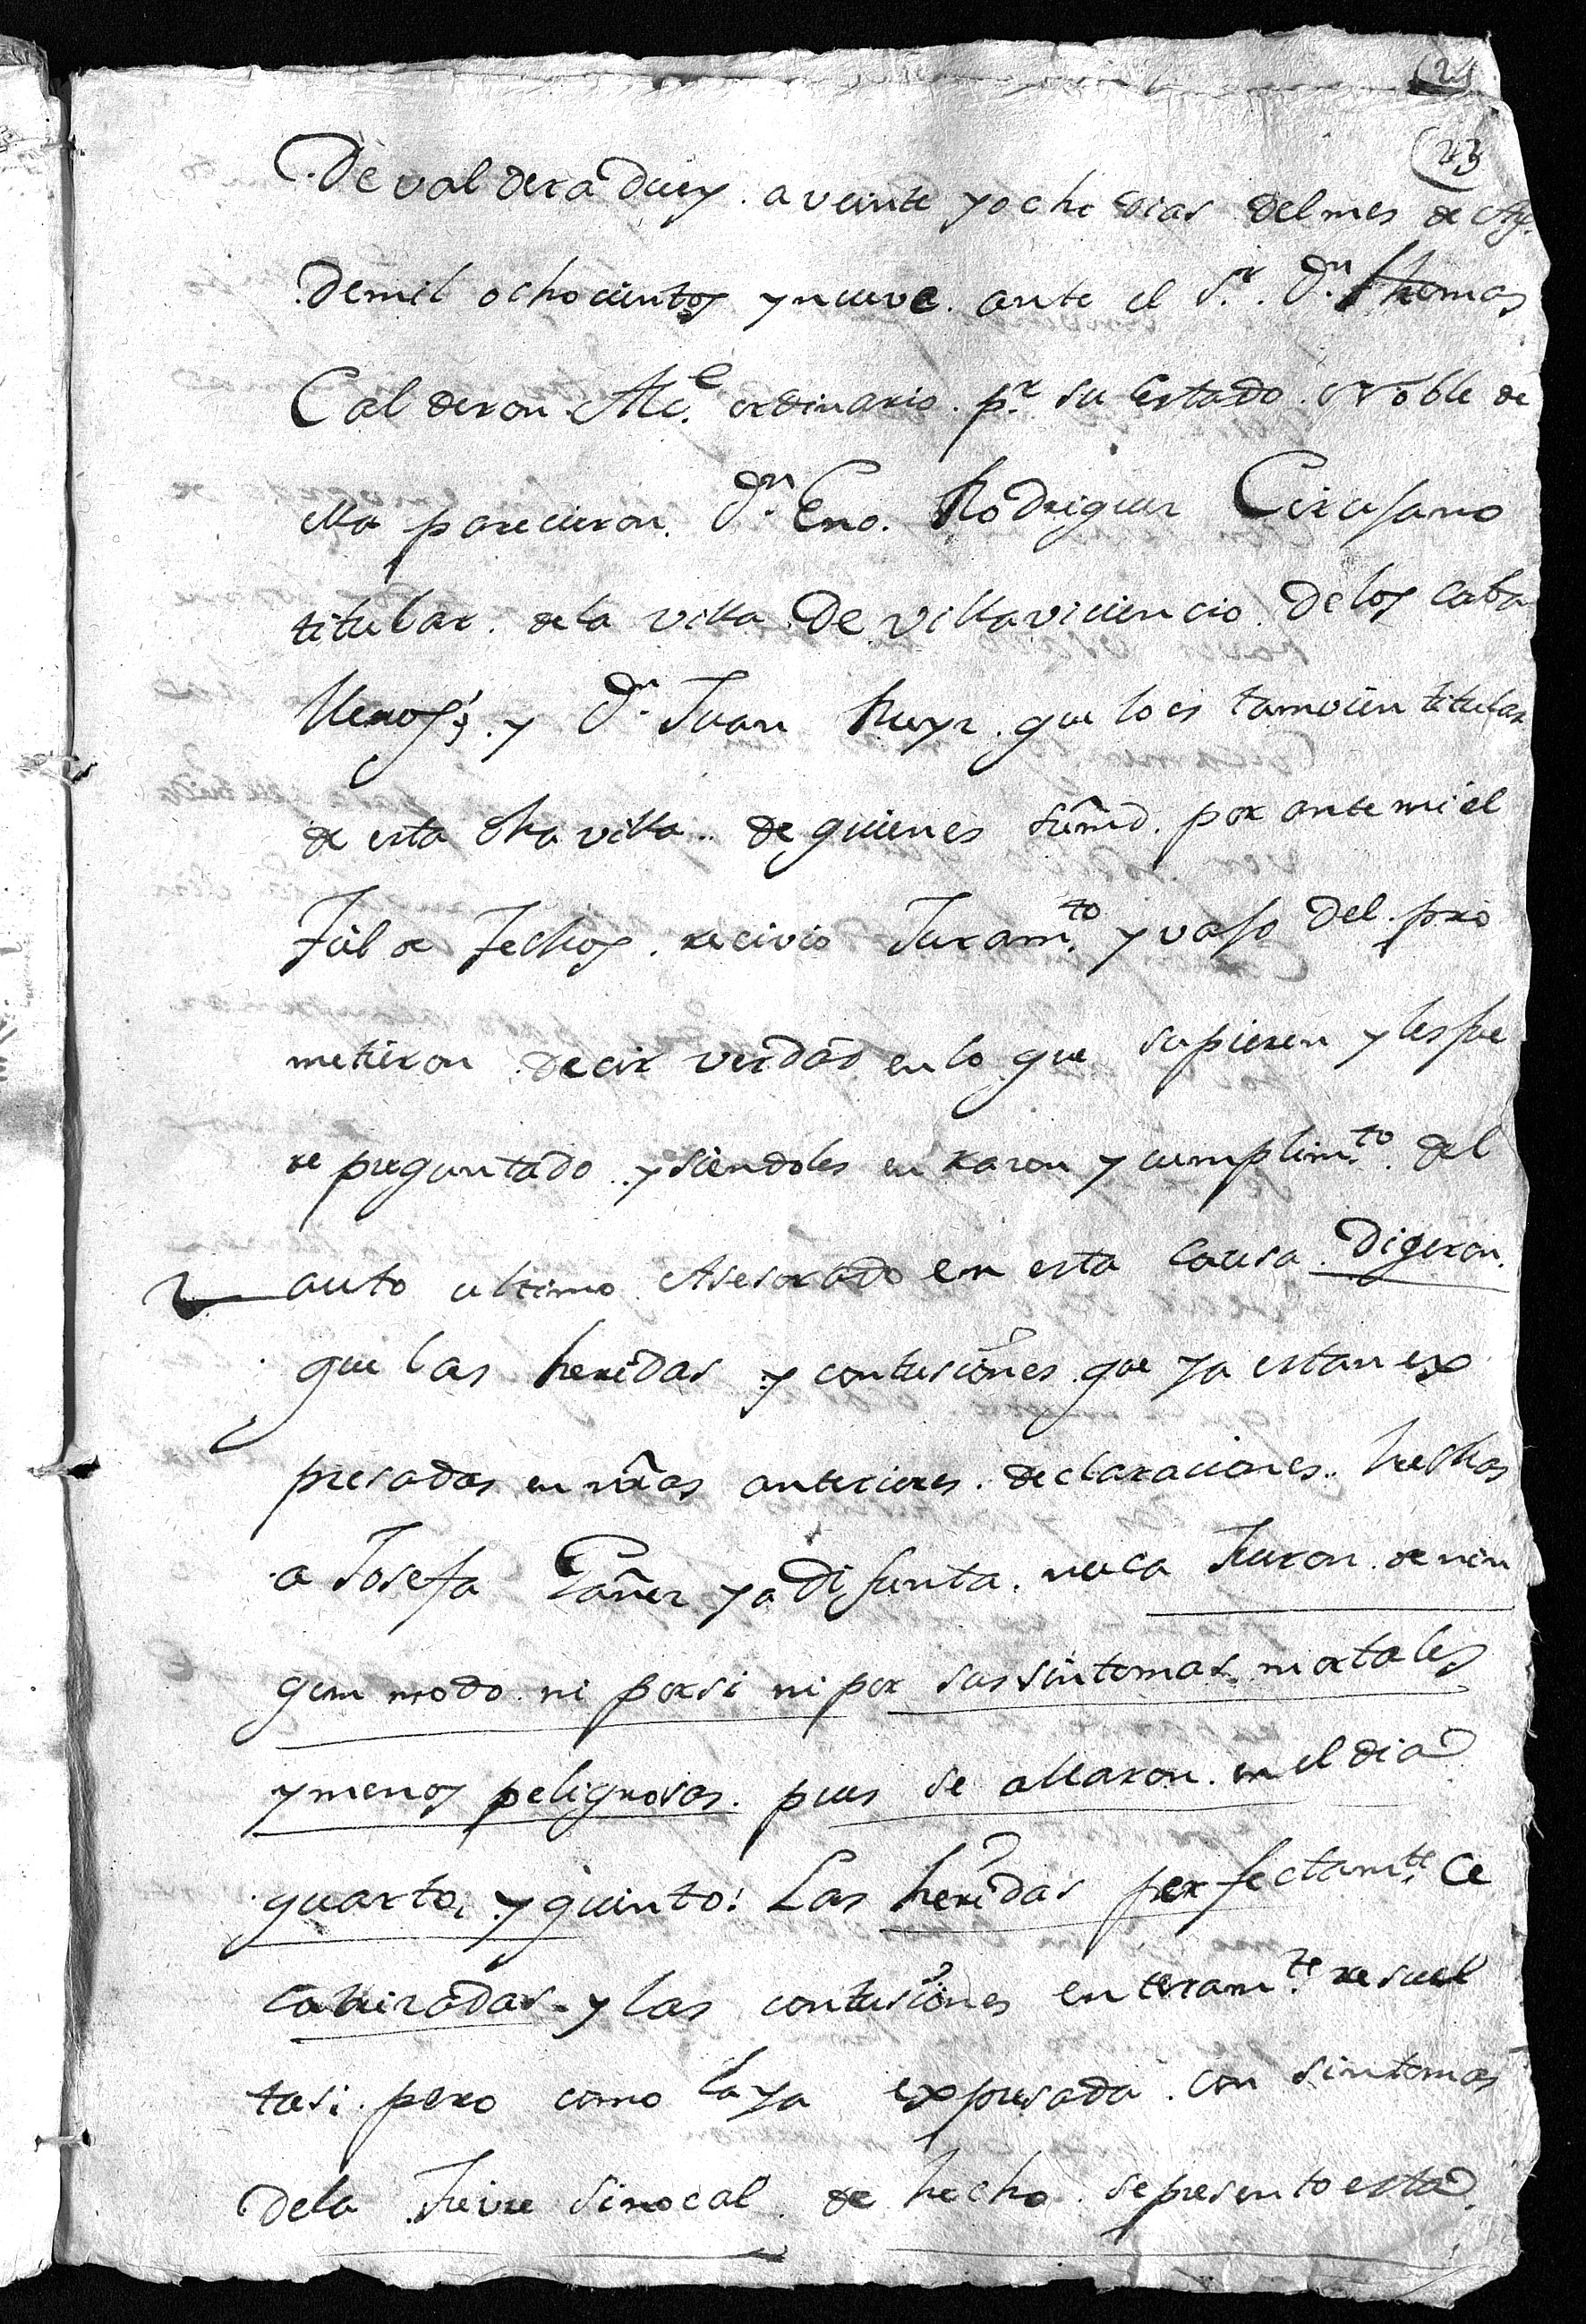 (23
De valderaduey. a veinte y ocho dias del mes de
de mil ochocientos y nueve. ante el Sr. Dn. Thomas
Calderon Alce. ordinario. pr. su Estado Noble de
ella parecieron. Dn. Rodriguez Cirujano
titular. de la villa De villavicencio. De los caba
lleros; y Dn. Juan Ruyz. que lo es tamvien titular
de esta dha villa.. de quienes sumd. por ante mi el
Fiel de Fechos. recivio Juramto. y vajo del. pro
metieron decir verdad en lo que supieren y les fue
re preguntado.. y siendoles en razon y cumplimto. del
auto ultimo Asesorado en esta causa. Digeron.
que las heridas y contusiones que ya estan ex
presadas en nras anteriores. declaraciones.. hechas
a Josefa Pañer ya Difunta. nuca Fueron. de nin
gum modo. ni por si ni por sus sintomas mortales
y menos peligrosas. pues se allaron. en el dia
quarto, y quinto: Las heridas perfectamte. Ce
catrizadas. y las contusiones enteramte. resuel
tas: pero como la ya expresada. con sintomas
De la Fievre sinocal. de hecho. se presento esta